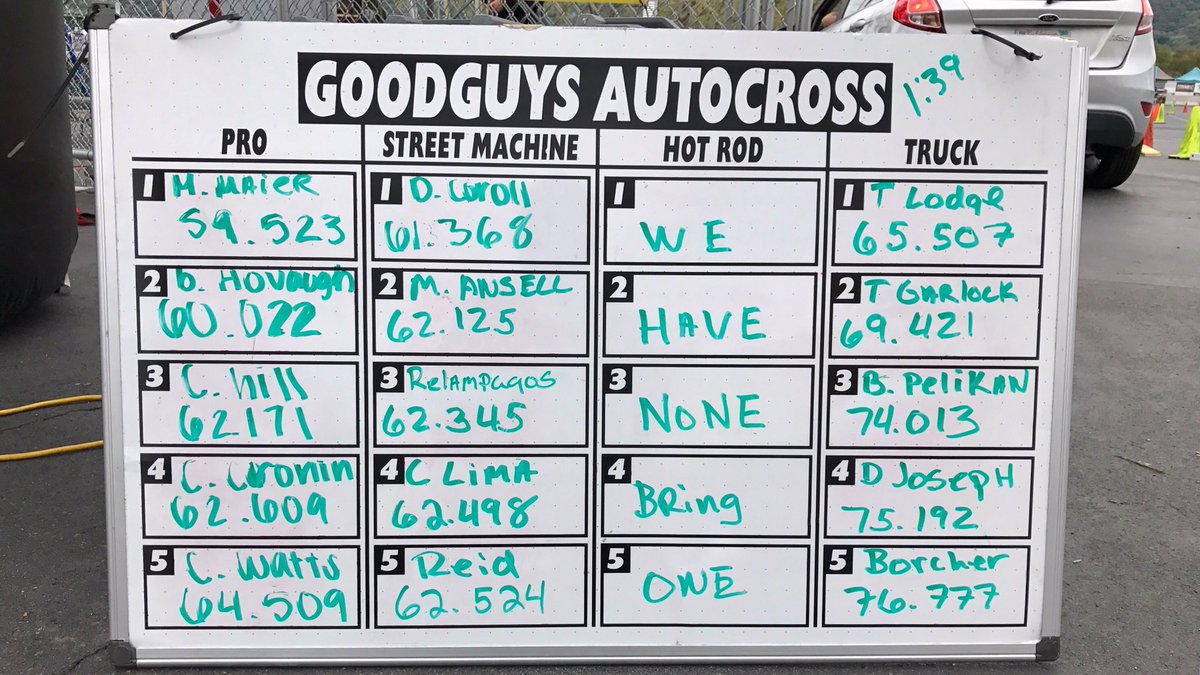 GOODGUYS AUTOCROSS
1:39
PRO
1 M. MAIER
59.523
2 B. Hovaugh
60.022
3 C. hill
62.171
4 C. Cronin
62.609
5 C. Watts
64.509
STREET MACHINE
1 D. Coroll
61.368
2 M. ANSELL
62.125
3 RelAMPAgos
62.345
4 C LIMA
62.498
5 Reid
62.524
HOT ROD
1 WE
2 HAVE
3 NONE
4 BRing
5 ONE
TRUCK
1 T Lodge
65.507
2 T GARLOCK
69.421
3 B. PeliKAN
74.013
4 D JosepH
75.192
5 Borcher
76.777
Ford